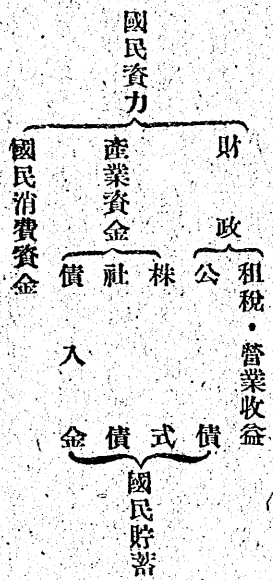 國民資力
財政
租稅・營業收益
公債
產業資金
株式
社債
債入金
國民消費資金
國民貯蓄